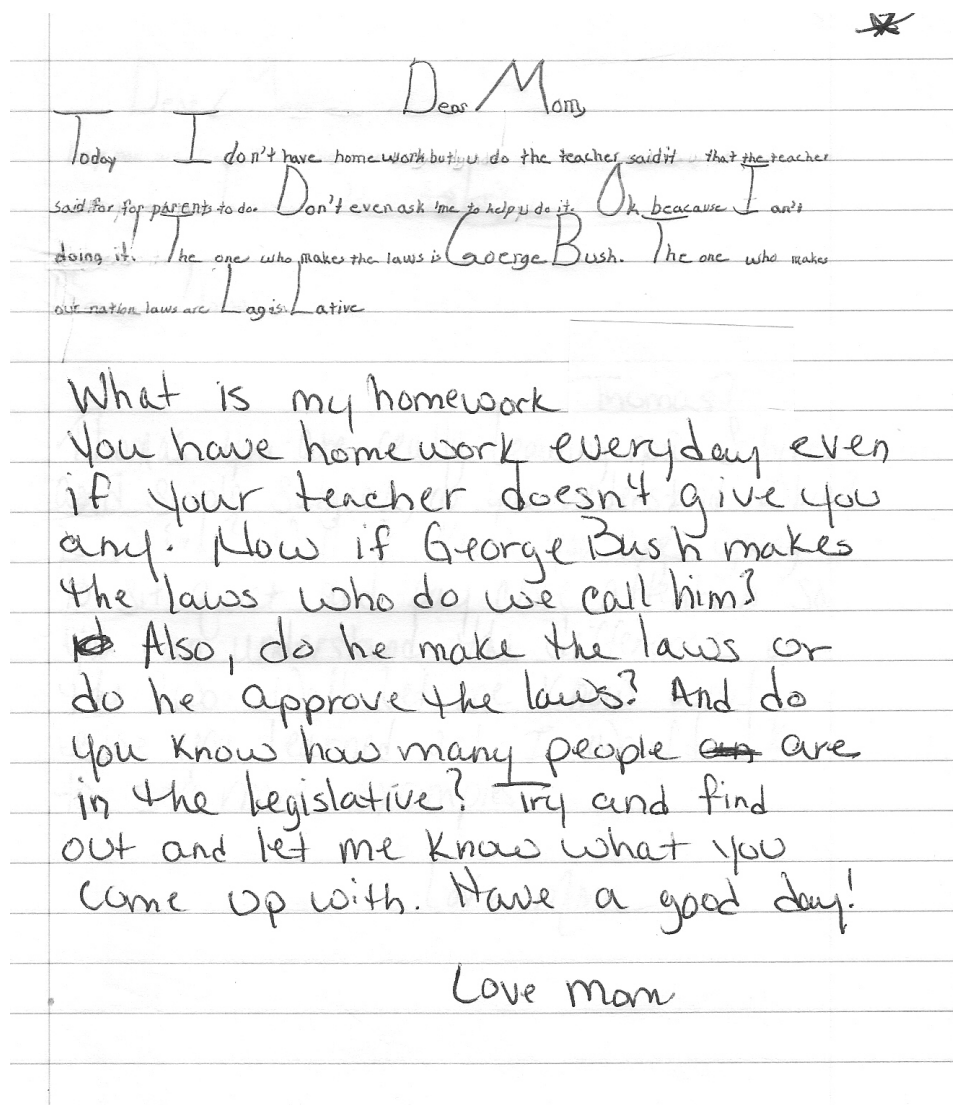 Dear Mom,
Today I don't have homework but u do the teacher said it that the teacher
said for for parents to do. Don't even ask me to help u do it. Ok beacause I ain't
doing it! The one who makes the laws is Goerge Bush. The one who makes
our nation laws are LagisLative
What is my homework
You have homework everyday even
if your teacher doesn't give you
any. Now if George Bush makes
the laws who do we call him?
Also, do he make the laws or
do he approve the laws? And do
you know how many people are
in the legislative? Try and find
out and let me know what you
come up with. Have a good day!
Love Mom